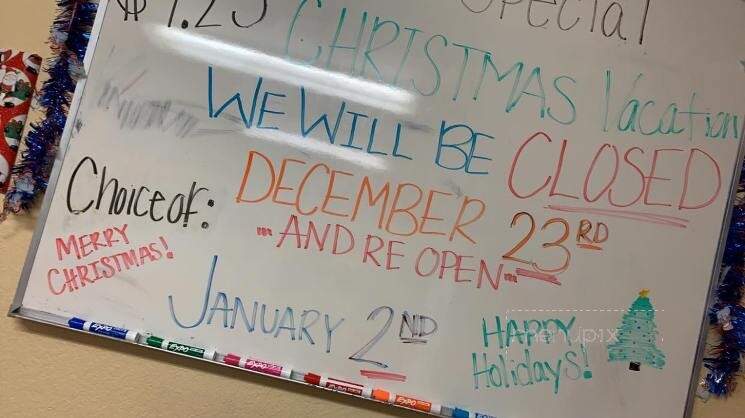 $1.25 Special
CHRISTMAS Vacation
WE WILL BE CLOSED
DECEMBER 23RD
Choice of:
"" AND RE OPEN ""
MERRY
CHRISTMAS!
JANUARY 2ND
HAPPY
Holidays!
menupix
EXPO
EXPO
EXPO
EXPO
EXPO